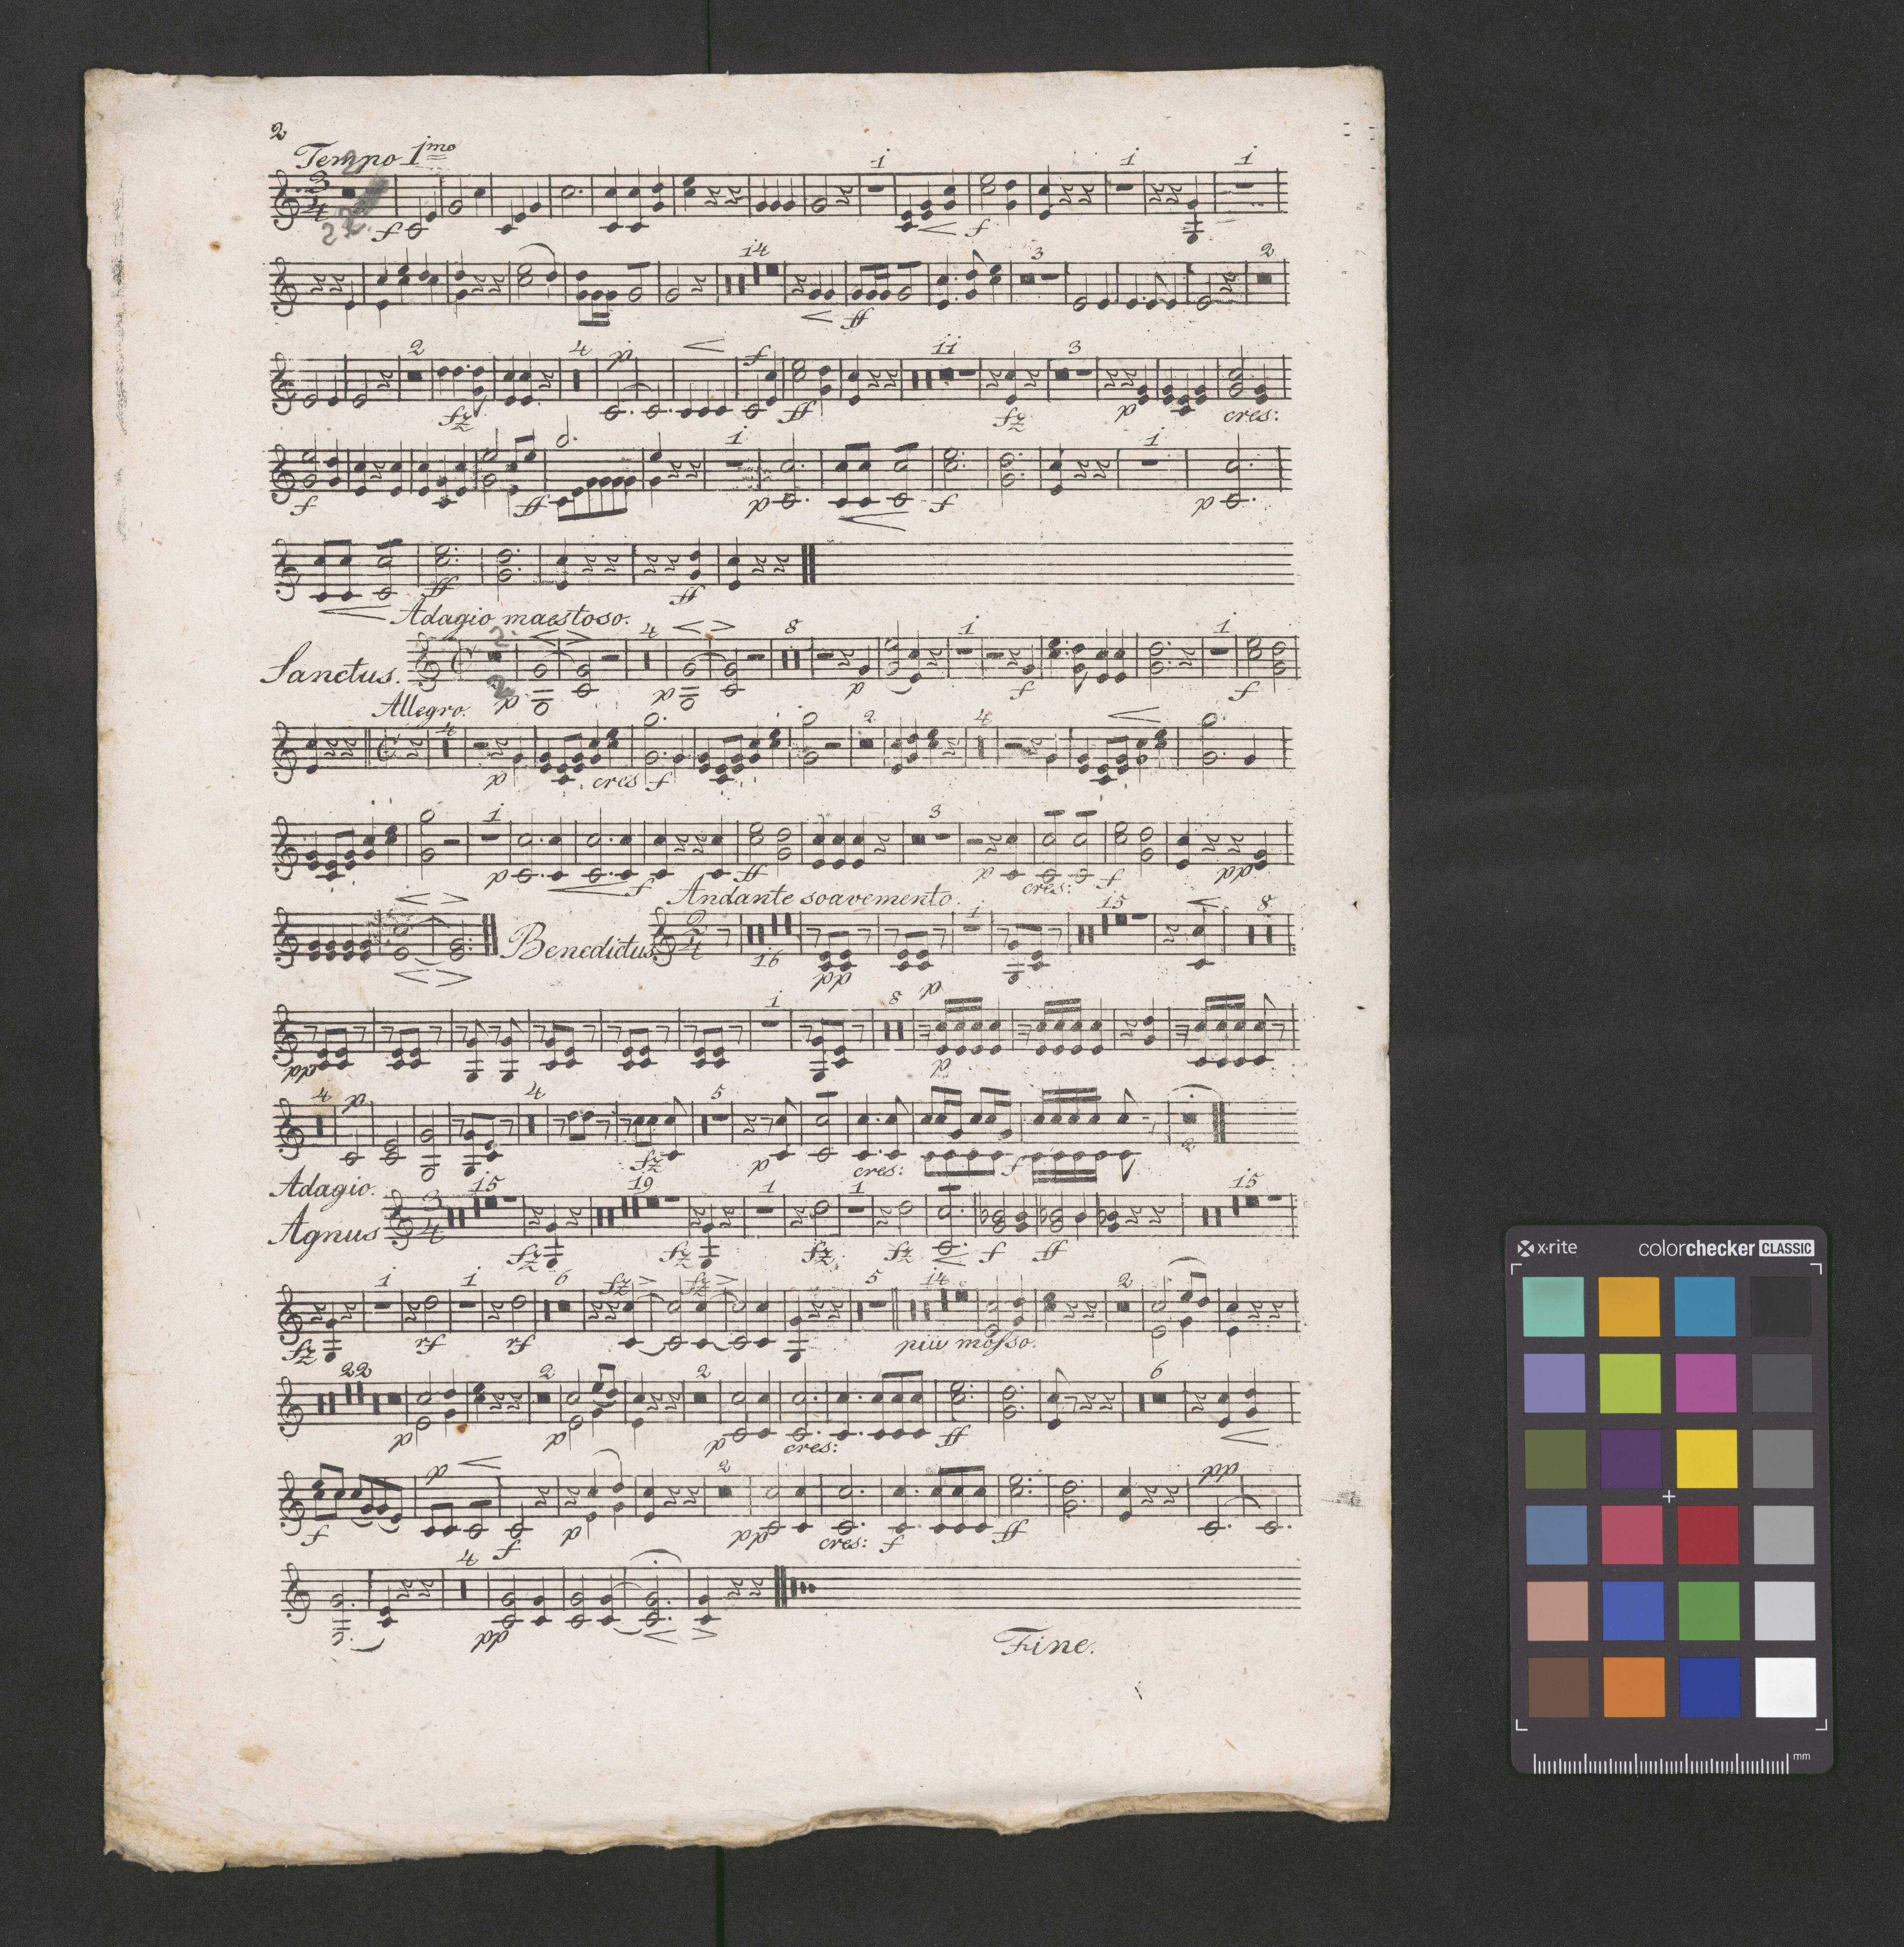 2
Tempo 1mo
2
3
4
22.
1
1
1
f
f
14
2
3
ff
2
4
p
f
11
3
fz
ff
fz
p
cres:
1
1
f
ff
p
f
p
ff
ff
Adagio maestoso.
2.
4
8
1
1
Sanctus.
2
p
p
p
f
f
Allegro.
4
2
4
p
cres
f
1
3
p
f
ff
p
cres:
f
pp
Andante soavemento.
Benedictus.
2
4
16
1
15
8
pp
p
1
8
pp
p
4
p
4
5
fz
p
cres:
f
2
Adagio.
15
19
1
1
15
Agnus
3
4
fz
fz
fz
fz
f
ff
1
1
6
fz
fz
5
14
2
fz
fz
fz
piu mosso.
22
2
2
6
p
p
p
cres:
ff
p
2
pp
f
f
p
pp
cres:
f
ff
4
pp
Fine.
x-rite
colorchecker CLASSIC
mm